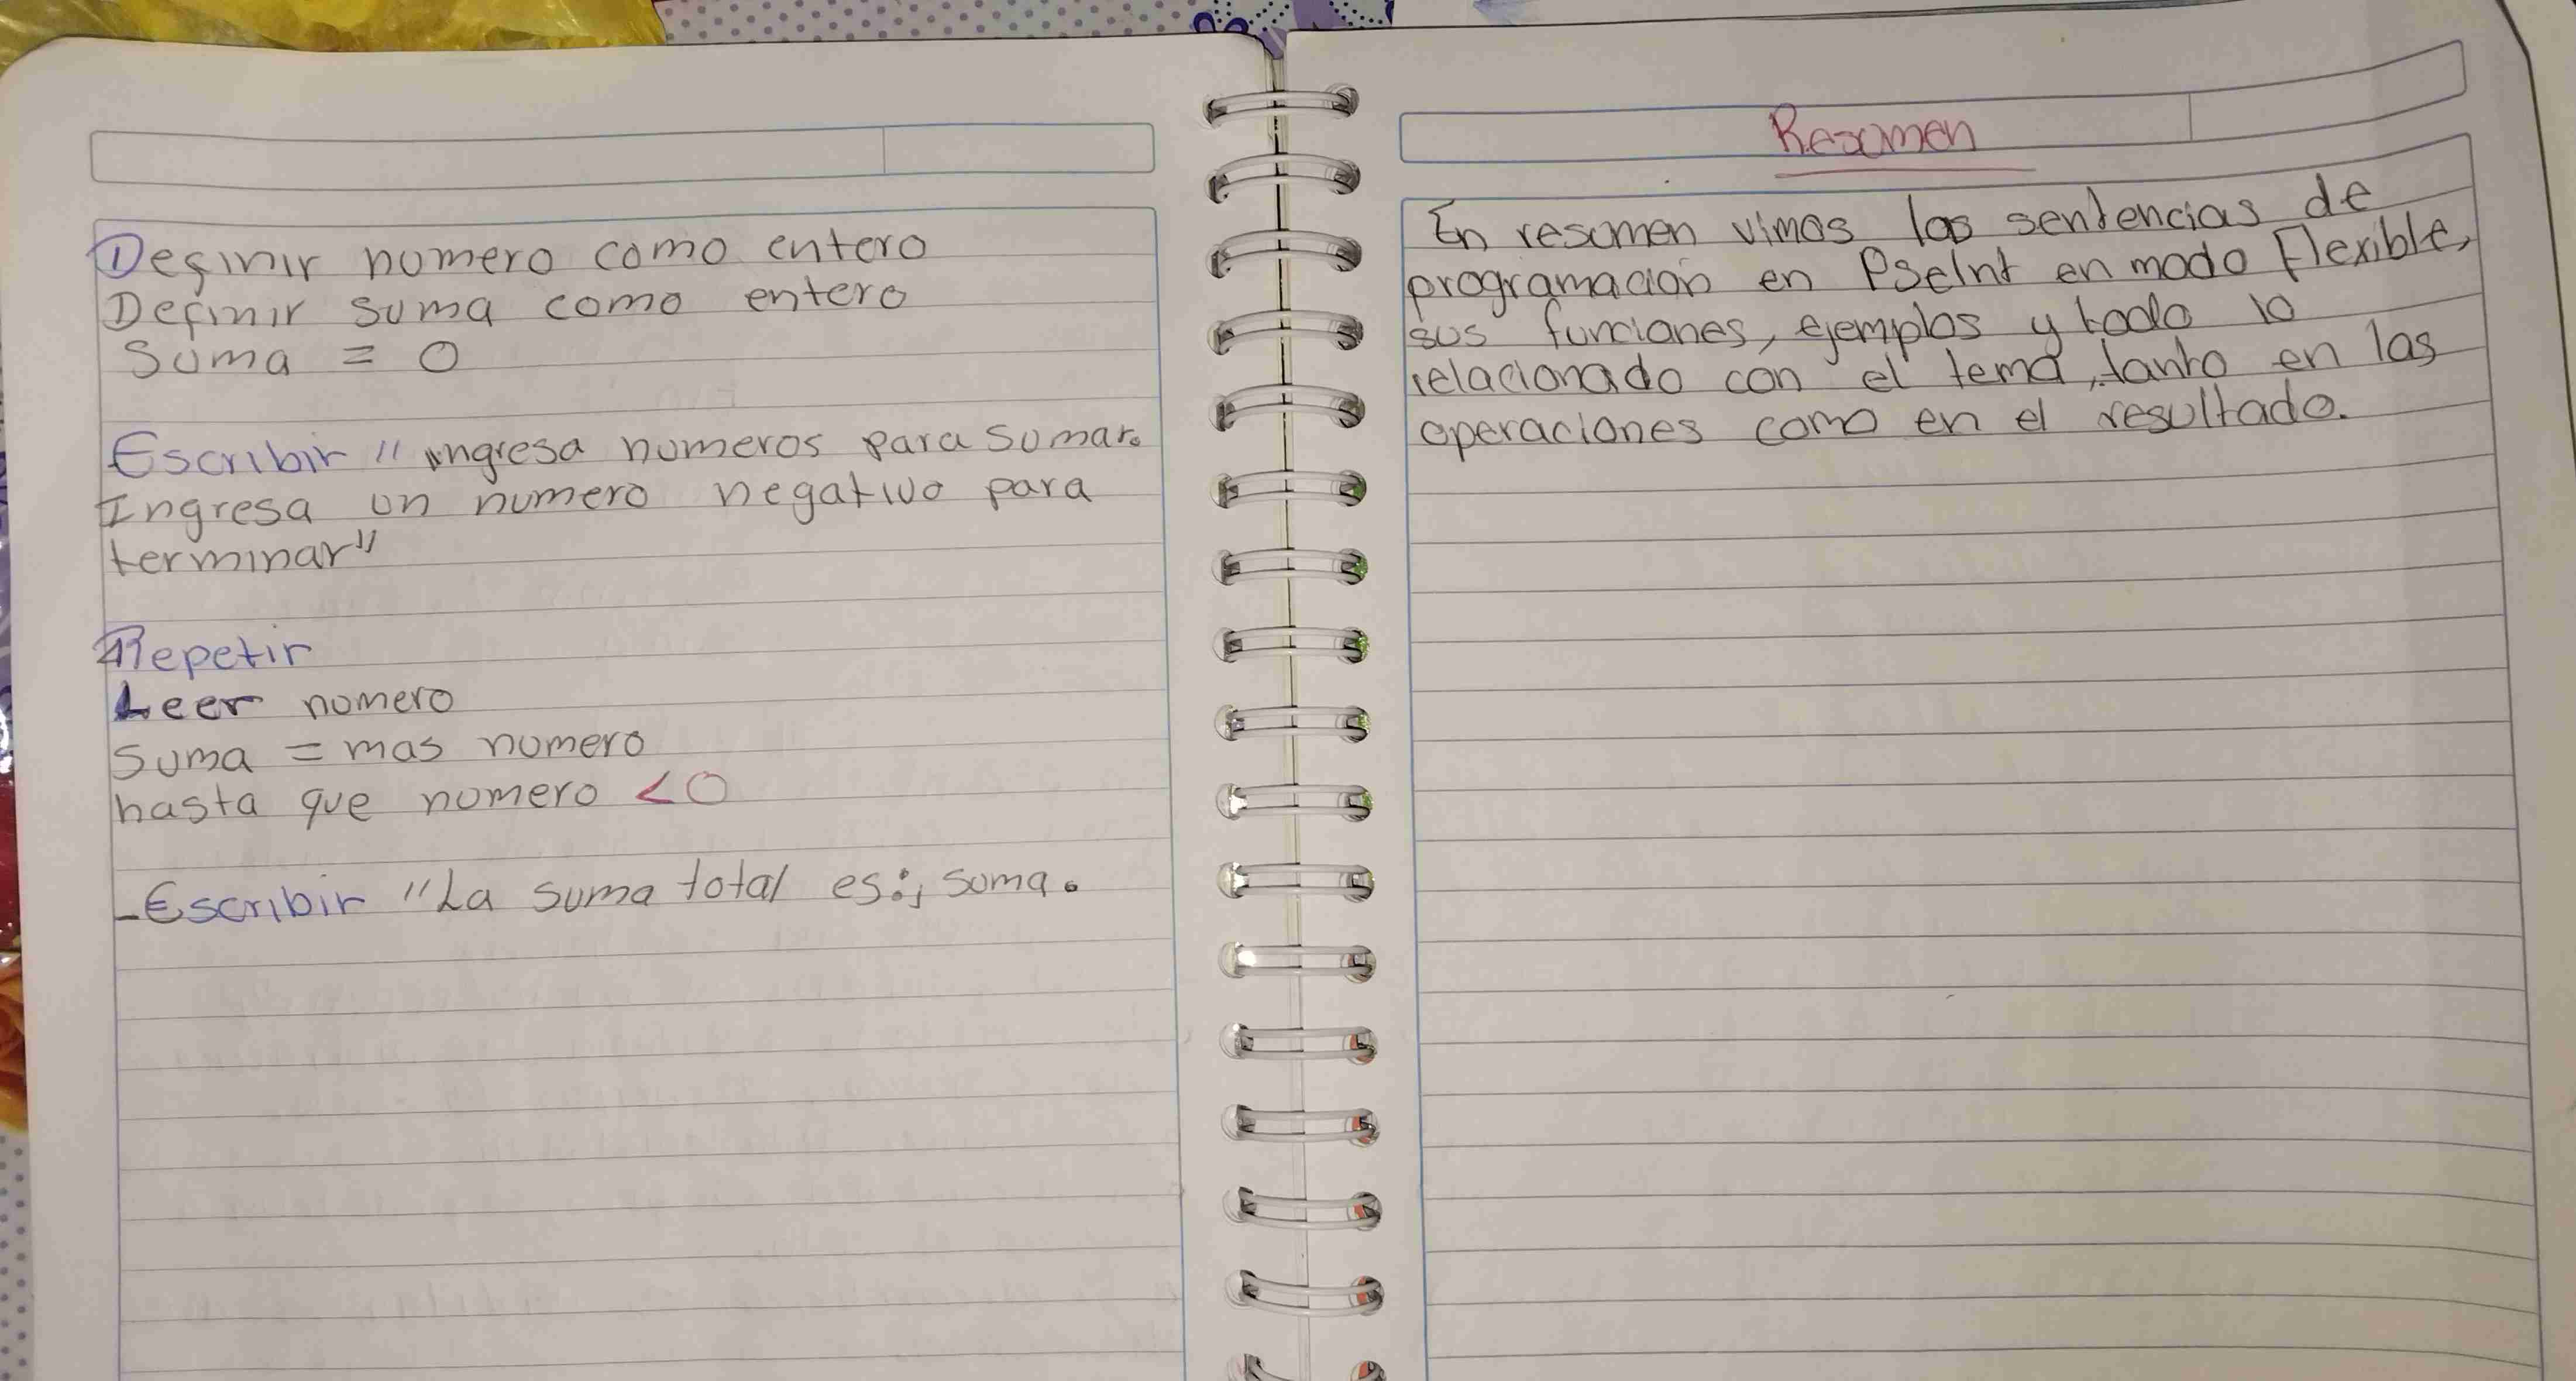 Definir numero como entero
Definir suma como entero
Suma = 0
Escribir " ingresa numeros para sumar.
Ingresa un numero negativo para
terminar"
Repetir
Leer numero
Suma = mas numero
hasta que numero <0
-Escribir "La suma total es:, suma.
Resumen
En resumen vimos las sentencias de
programación en PseInt en modo Flexible,
sus funciones, ejemplos y todo lo
relacionado con el tema, tanto en las
operaciones como en el resultado.